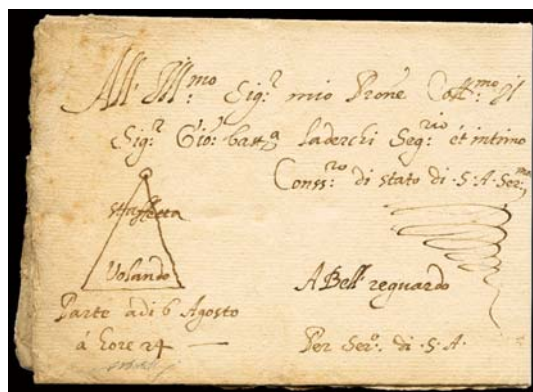 All' Ill:mo Sig:r mio Prone Coll:mo il
Sig:r Gio: batta Laderchi Seg:rio et intimo
Conss:ro di stato di S.A. Ser:ma
staffetta
Volando
A Bell reguardo
Parte adi 6 Agosto
á hore 24
Per Ser:o di S.A.